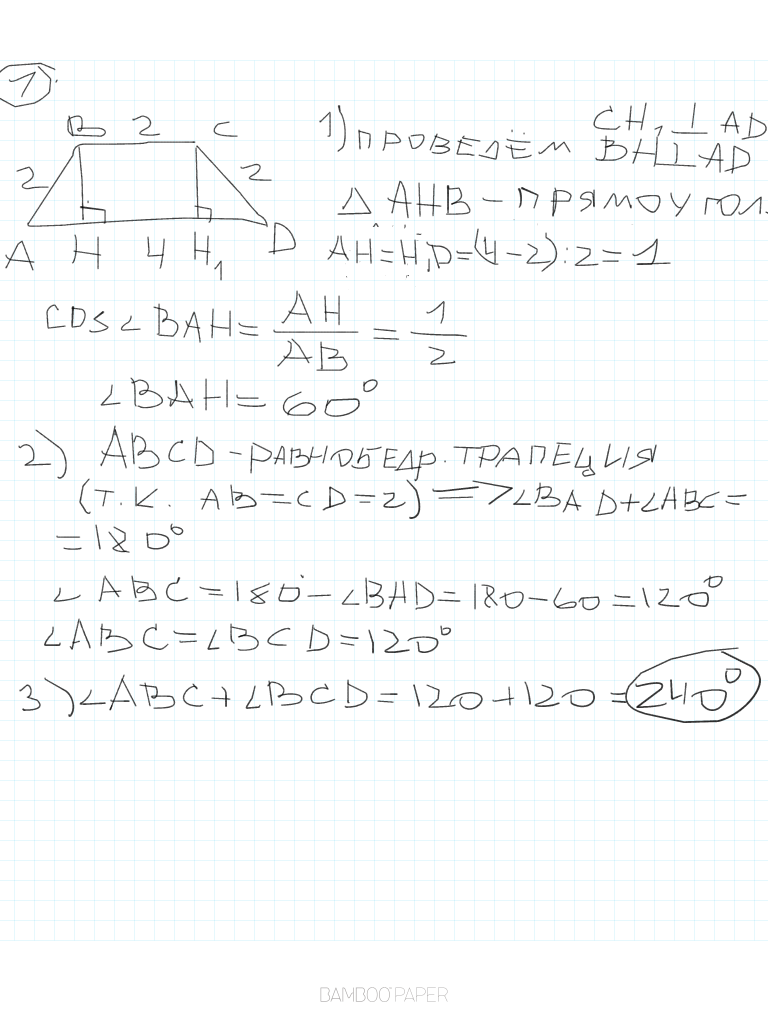 1.
B 2 C
2 2
A H 4 H₁ D
1) ПРОВЕДЁМ CH₁ ⊥ AD
BH ⊥ AD
△ AHB – ПРЯМОУГОЛ.
AH = H₁D = (4 – 2) : 2 = 1
COS ∠ BAH = AH / AB = 1 / 2
∠BAH = 60°
2) ABCD – РАВНОБЕДР. ТРАПЕЦИЯ
(Т.К. AB = CD = 2) => ∠BAD + ∠ABC =
= 180°
∠ ABC = 180 – ∠BAD = 180 – 60 = 120°
∠ABC = ∠BCD = 120°
3) ∠ABC + ∠BCD = 120 + 120 = 240°
BAMBOO PAPER